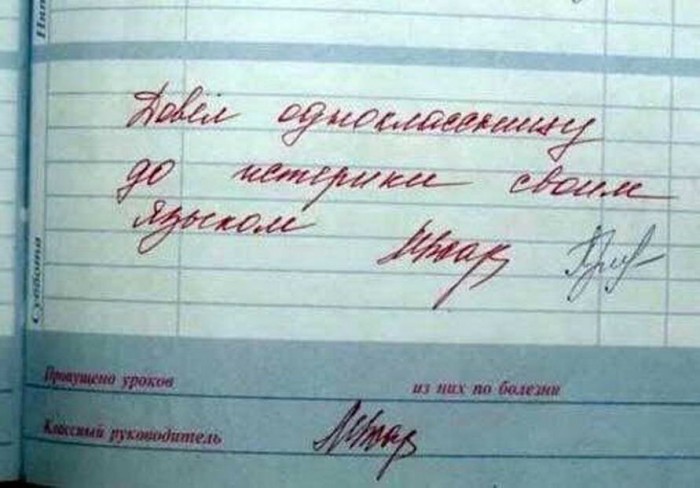 Довёл одноклассницу
до истерики своим
языком
Суббота
Пропущено уроков
из них по болезни
Классный руководитель